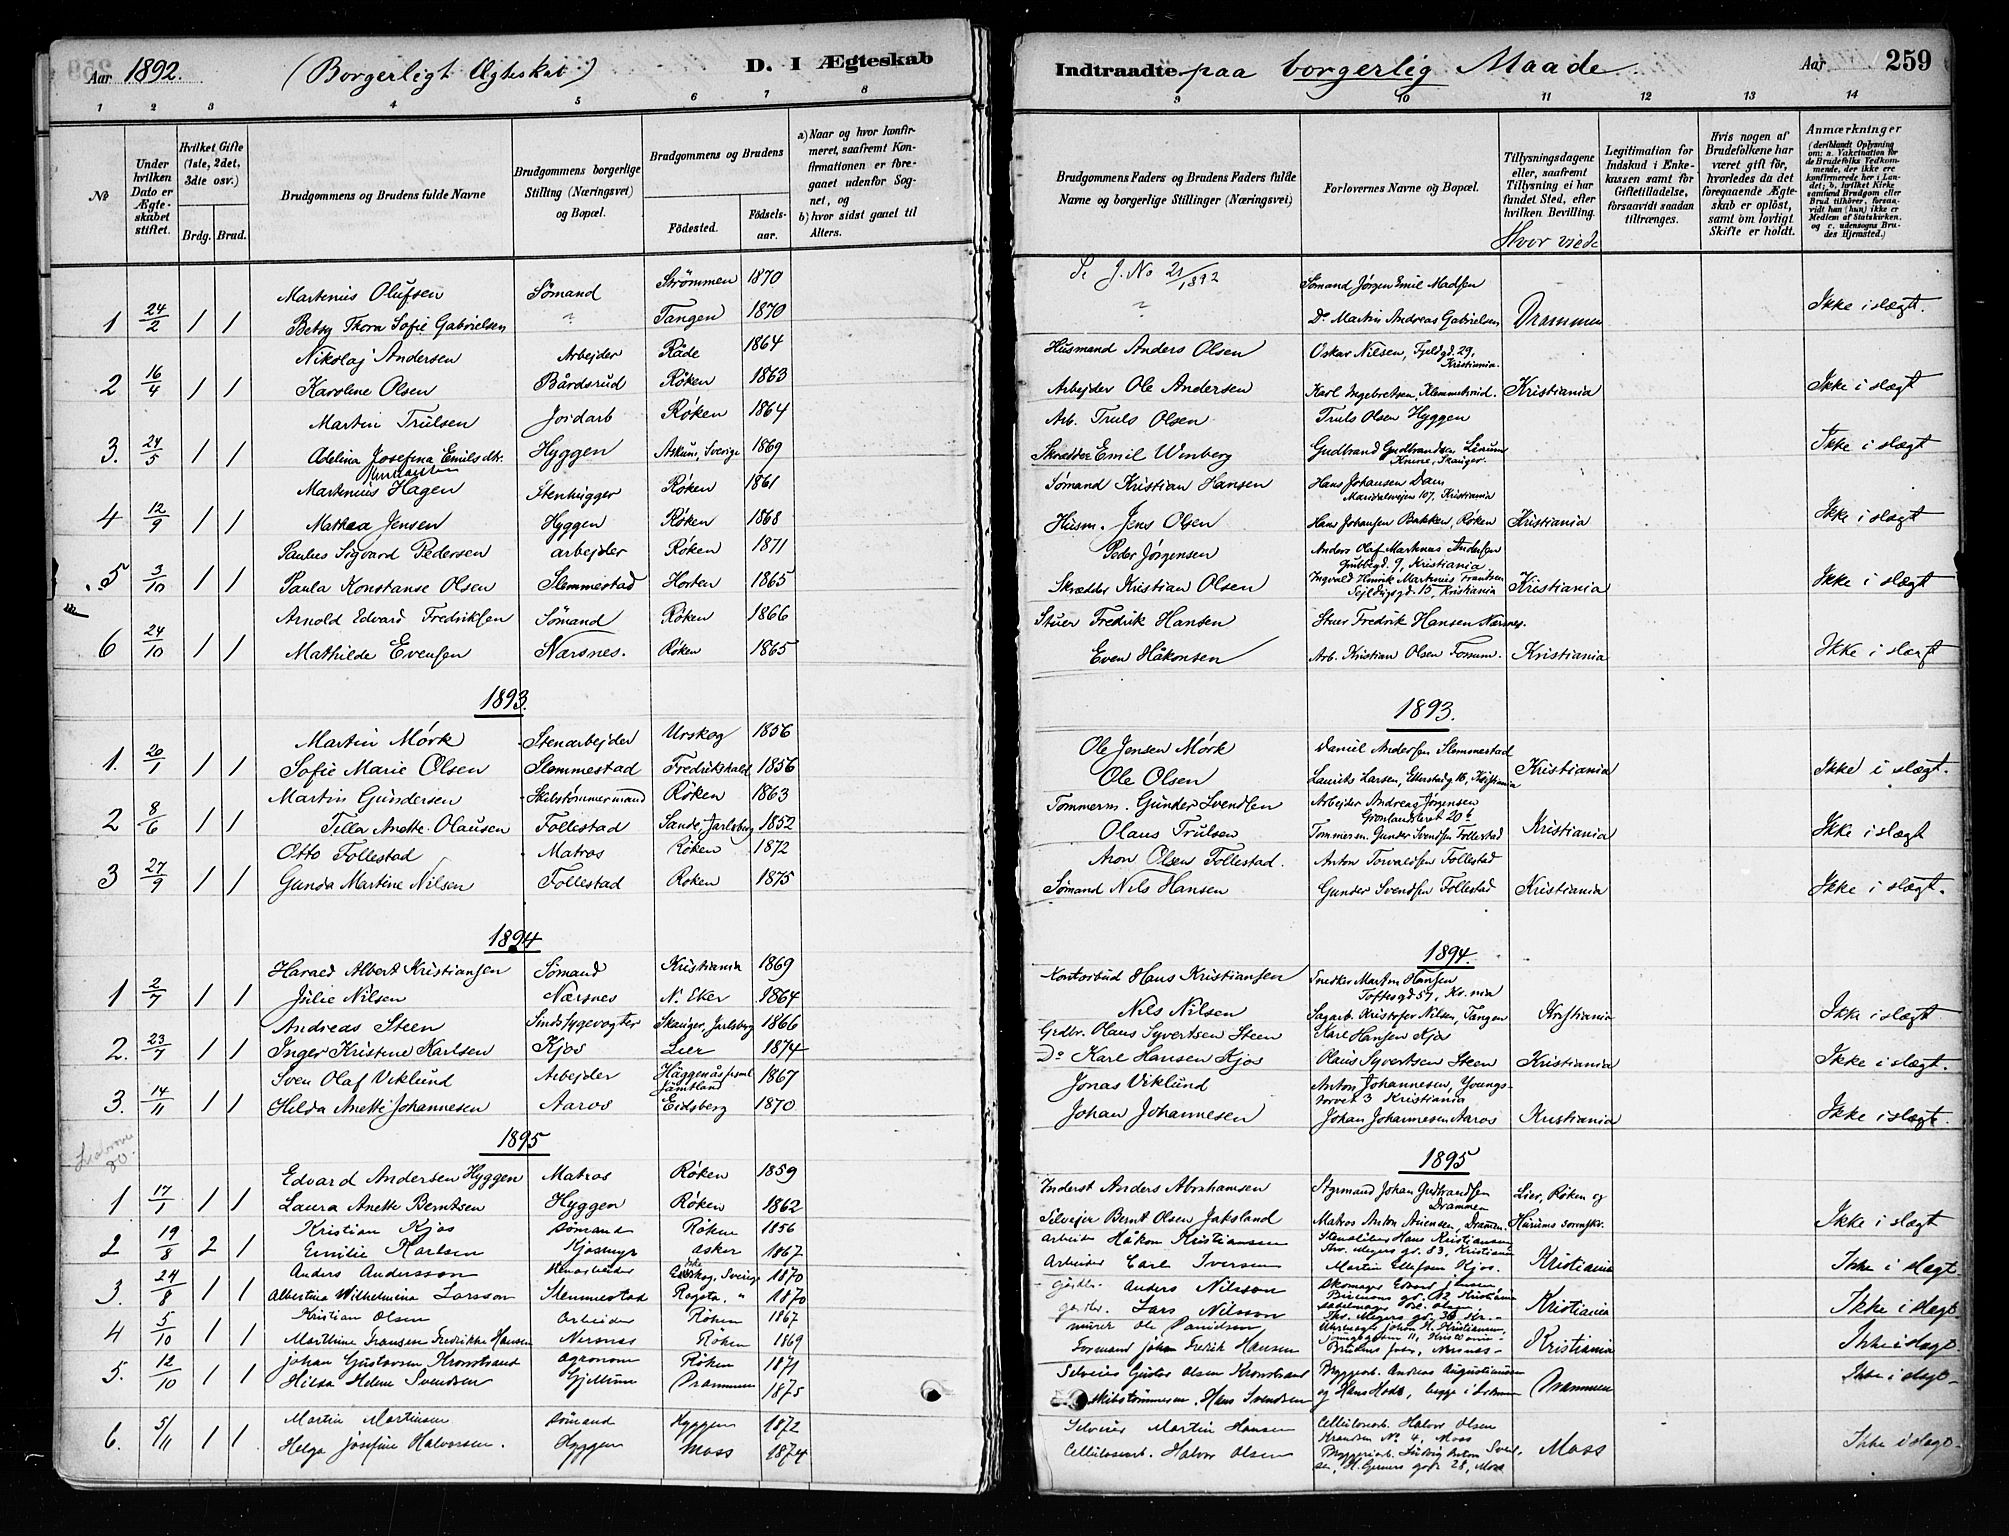 Aar 1892. (Borgerligt Ægteskab) D. I Ægteskab
1 2 3 4 5 6 7 8
№
Under hvilken Dato er Ægteskabet stiftet.
Hvilket Gifte (1ste, 2det, 3die osv.)
Brdg. Brud.
Brudgommens og Brudens fulde Navne
Brudgommens borgerlige Stilling (Næringsvei) og Bopæl.
Brudgommens og Brudens
Födested. Födselsaar.
a) Naar og hvor konfirmeret, saafremt Konfirmationen er foregaaet udenfor Sognet, og
b) hvor sidst gaaet til Alters.
Martenius Olufsen Sömand Strömmen 1870
1 24/2 1 1 Betsy Thora Sofie Gabrielsen " Tangen 1870
Nikolaj Andersen Arbejder Råde 1864
2 16/4 1 1 Karoline Olsen Bårdsrud Röken 1863
Martin Trulsen Jordarb Röken 1864
3. 24/5 1 1 Adelina Josefina Emilsdtr. Hyggen Askum, Sverige 1869
Martenius Hagen Stenhugger Röken 1861
4 12/9 1 1 Mathea Jensen Hyggen Röken 1868
Paulus Sigvard Pedersen arbejder Röken 1871
5 3/10 1 1 Paula Konstanse Olsen Slemmestad Horten 1865
Arnold Edvard Fredriksen Sömand Röken 1866
6 24/10 1 1 Mathilde Evensen Nærsnes. Röken 1865
1893.
Martin Mörk Stenarbejder Urskog 1856
1. 20/1 1 1 Sofie Marie Olsen Slemmestad Fredrikshald 1856
Martin Gundersen Skibstömmermand Röken 1863
2 8/6 1 1 Tilla Anette Olausen Follestad Sande, Jarlsberg 1852
Otto Follestad Matros Röken 1872
3 27/9 1 1 Gunda Martine Nilsen Follestad Roken 1875
1894
Harald Albert Kristiansen Sömand Kristiania 1869
1 2/7 1 1 Julie Nilsen Nærsnes N. Eker 1864
Andreas Steen Sindssygevogter Skauger, Jarlsberg 1866
2. 23/7 1 1 Inger Kristine Karlsen Kjos Lier 1874
Sven Olaf Viklund Arbejder Häggenås Jämtland 1867
3. 14/11 1 1 Hilda Anette Johannesen Aaros Eidsberg 1870
1895
Edvard Andersen Hyggen Matros Röken 1859
1 17/1 1 1 Laura Anette Berntsen Hyggen Röken 1862
Kristian Kjos Sömand Röken 1856
2 19/8 2 1 Emilie Karlsen Kjosmyr asker 1867
Anders Andersson Stenarbeider Sverige 1870
3. 24/8 1 1 Albertina Wilhelmina Larsson Slemmestad Rogsta, " 1870
Kristian Olsen Arbeider Röken 1867
4 5/10 1 1 Marthine Fransen Fredrikke Hansen Nersnes Röken 1869
Johan Gustavsen Kronstrand agronom Röken 1871
5. 12/10 1 1 Hilda Helene Svendsen Gjellum Drammen 1875
Martin Martinsen Sömand Hyggen 1872
6. 5/11 1 1 Helga Josefine Halvorsen. Hyggen Moss 1874
Indtraadte paa borgerlig Maade Aar 259
9 10 11 12 13 14
Brudgommens Faders og Brudens Faders fulde Navne og borgerlige Stillinger (Næringsvei)
Forlovernes Navne og Bopæl.
Tillysningsdagene eller, saafremt Tillysning ei har fundet Sted, efter hvilken Bevilling.
Hvor viede
Legitimation for Indskud i Enkekassen samt for Giftetilladelse, forsaavidt saadan tiltrænges.
Hvis nogen af Brudefolkene har været gift för, hvorledes da det foregaaende Ægteskab er oplöst, samt om lovligt Skifte er holdt.
Anmærkninger (deriblandt Oplysning om: a. Vakcination for de Brudefolks Vedkommende, der ikke ere konfirmerede her i Landet; b. hvilket Kirkesamfund Brudgom eller Brud tilhörer, forsaavidt han (hun) ikke er Medlem af Statskirken, og c. udensogns Brudes Hjemsted.)
J. No 21/1892 Sömand Jörgen Emil Madsen
" Do Martin Andreas Gabrielsen Drammen Ikke i slægt.
Husmand Anders Olsen Oskar Nilsen, Fjeldgd. 29, Kristiania.
Arbejder Ole Andersen Karl Ingebretsen, Klemmetsrud. Kristiania Ikke i slægt
Arb. Truls Olsen Truls Olsen Hyggen
Skrædder Emil Winberg Gudbrand Gudbrandsen Skauger. Ikke i slægt
Sömand Kristian Hansen Hans Johansen Dam Maridalsvejen 107, Kristiania
Husm. Jens Olsen Hans Johansen Bakken, Röken Kristiania Ikke i slægt
Peder Jörgensen Anders Olaf Martenus Andersen Gubbegd. 9, Kristiania
Skrædder Kristian Olsen Ingvald Henrik Martenius Frantsen Sejldugsgd. 15, Kristiania Kristiania Ikke i slægt
Stuer Fredrik Hansen Stuer Fredrik Hansen Nærsnes.
Even Håkonsen Arb. Kristian Olsen Torsum. Kristiania Ikke i slægt
1893.
Ole Jensen Mörk Daniel Andersen Slemmestad
Ole Olsen Laurits Larsen, 16, Kristiania Kristiania Ikke i slægt.
Tommerm. Gunder Svendsen Arbejder Andreas Jörgensen Grönlandsleret 20
Olaus Trulsen Tommerm. Gunder Svendsen Follestad Kristiania Ikke i slægt
Aron Olsen Follestad. Anton Torvaldsen Follestad
Sömand Nils Hansen Gunder Svendsen Follestad Kristiania Ikke i slægt.
1894.
Kontorbud Hans Kristiansen Snedker Martin Hansen Toftesgd 57, Kr.nia
Nils Nilsen Sagarb. Kristofer Nilsen, Tangen Kristiania Ikke i slægt
Grdbr. Olaus Syvertsen Steen Karl Hansen Kjos
Do Karl Hansen Kjos Olaus Syvertsen Steen Kristiania Ikke i slægt.
Jonas Viklund Anton Johannesen, Youngstorvet 3 Kristiania
Johan Johannesen Johan Johannesen Aaros Kristiania Ikke i slægt.
1895
Inderst Anders Abrahamsen Styrmand Johan Gudbrandsen Drammen Lier, Röken og
Selvejer Bernt Olsen Jaksland Matros Anton Drammen. Hurums sorenskr. Ikke i slægt
arbeider Håkon Kristianssen Hans Kristiansen Thv. Meyers gd. 83, Kristiania
Arbeider Carl Iversen Martin Ellefsen Kjos. Kristiania Ikke i slægt.
gårdbr. Anders Nilsson Skomager Edvard Jensen
gårdbr. Lars Nilsson Sadelmager Thv. Meyers gd. 36 Kr. Kristiania Ikke i slægt.
murer Ole Danielsson Johan H. Kristiansen,
Formand Johan Fredrik Hansen Nersnes Kristiania Ikke i slægt.
Selveier Gustav Olsen Kronstrand Byggearb. Andreas Augustinussen
Skibstömmerm. Hans Svendsen og Hans Hoda, begge i Drammen Ikke i slægt
Selveier Martin Hansen Cellulosearb. Halvor Olsen Kransen No 4, Moss
Cellulosearb. Halvor Olsen Byggeriarb. Ludvig Anton Svendsen, H. Gerners gade 28, Moss Moss Ikke i slægt